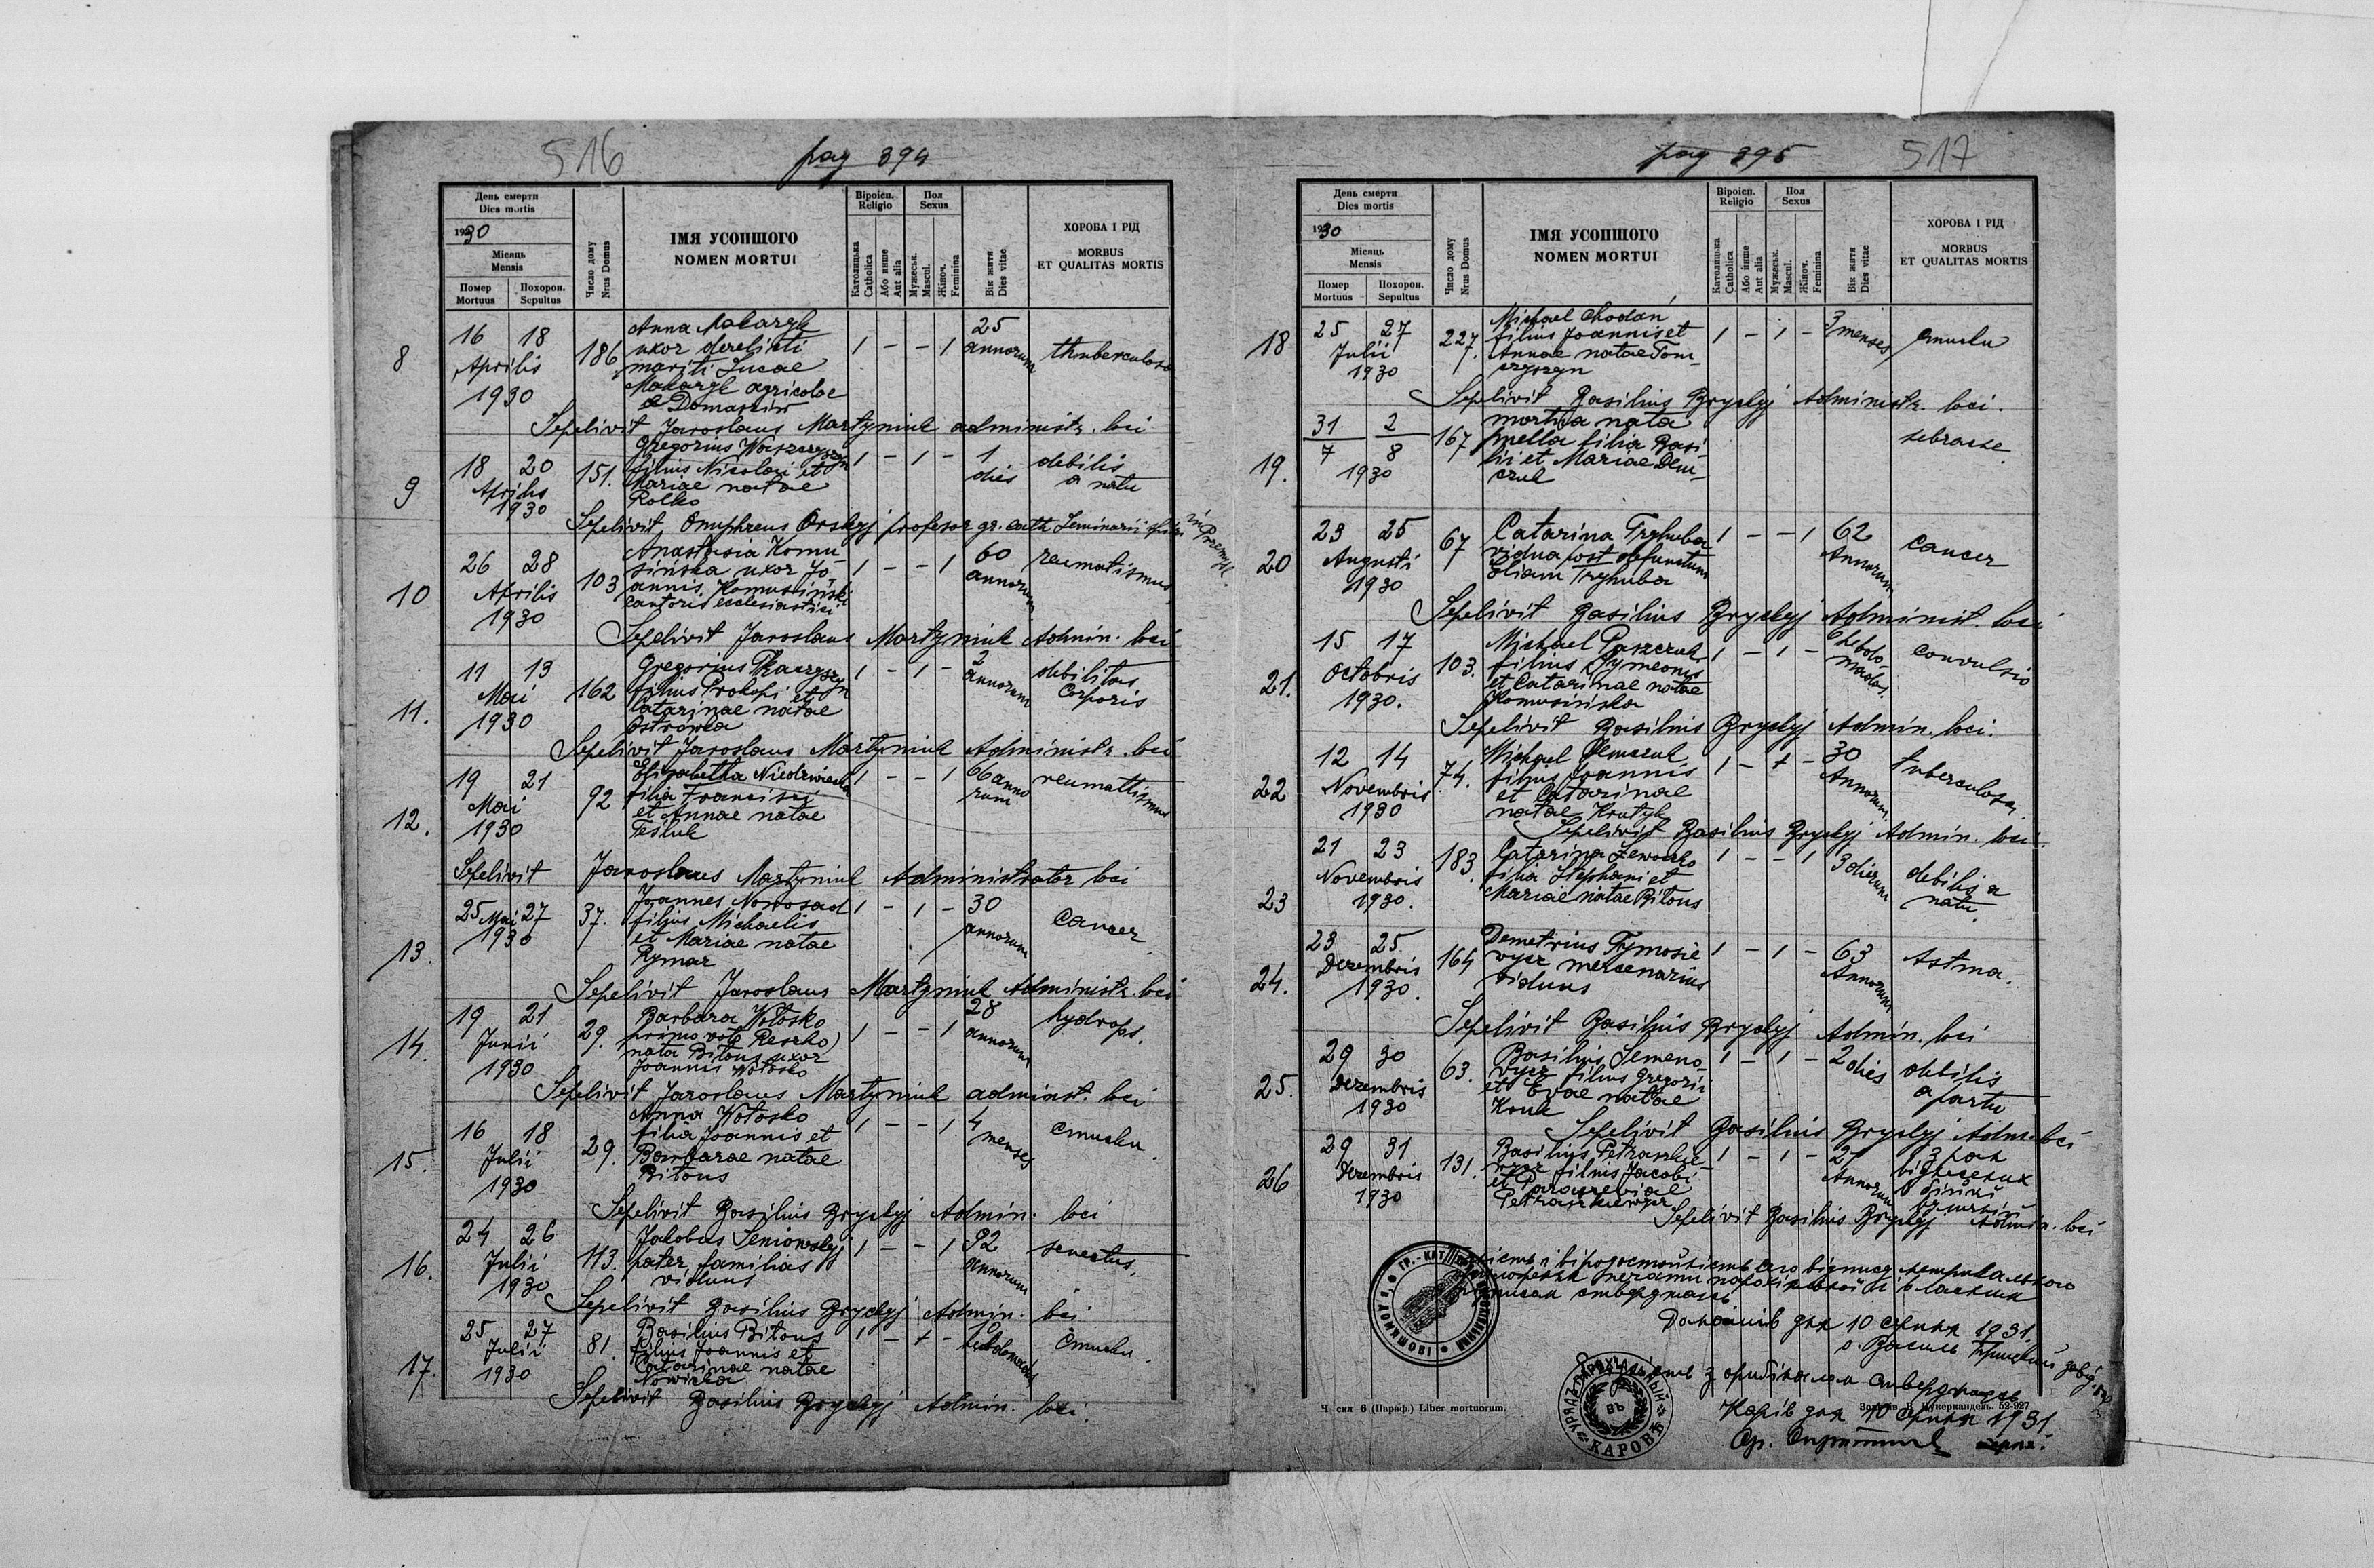 516
pag 394
День смерти
Dies mortis
1930
Місяць
Mensis
Помер
Mortuus
Похорон.
Sepultus
Число дому
Nrus Domus
ІМЯ УСОПШОГО
NOMEN MORTUI
Віроісп.
Religio
Католицька
Catholica
Або инше
Aut alia
Пол
Sexus
Мужеськ.
Mascul.
Жіноч.
Feminina
Вік житя
Dies vitae
ХОРОБА І РІД
MORBUS
ET QUALITAS MORTIS
8
16 18
Aprilis
1930
186
Anna Makargh
uxor derelicti
mariti Lucae
Makargh agricolae
e Domasziw
1 - - 1
25
annorum
thuberculosa
Sepelivit Jaroslaus Martyniuk administr. loci
9
18 20
Aprilis
1930
151.
Gregorius Waszczyszyn
filius Nicolai et
Mariae natae
Rolko
1 - 1 -
1
dies
debilis
a natu
Sepelivit Onuphreus Orskyj profesor gr. cath Seminarii
in Przemysl.
10
26 28
Aprilis
1930
103
Anastasia Komu-
sińska uxor Jo-
annis Komusiński
cantoris ecclesiastici
1 - - 1
60
annorum
reumatismus
Sepelivit Jaroslaus Martyniuk Admin. loci
11.
11 13
Mai
1930
162
Gregorius Tkaczyszyn
filius Prokopi et
Catarinae natae
Ostrowka
1 - 1 -
2
annorum
debilitas
Corporis
Sepelivit Jaroslaus Martyniuk Administr. loci
12.
19 21
Mai
1930
92
Elisabetha Niedzwiecka
filia Francisci
et Annae natae
Tesluk
1 - - 1
66 anno
rum
reumattismus
Sepelivit Jaroslaus Martyniuk Administrator loci
13.
25 Mai 27
1930
37.
Joannes Nowosad
filius Michaelis
et Mariae natae
Rymar
1 - 1 -
30
annorum
Cancer
Sepelivit Jaroslaus Martyniuk Administr. loci
14.
19 21
Junii
1930
29.
Barbara Wołosko
primo voto Reszko)
nata Bitous uxor
Joannis Wołosko
1 - - 1
28
annorum
hydrops.
Sepelivit Jaroslaus Martyniuk administ. loci
15.
16 18
Julii
1930
29.
Anna Wołosko
filia Joannis et
Barbarae natae
Bitous
1 - - 1
4
menses
Cmucku
Sepelivit Basilius Bryckyj Admin. loci
16.
24 26
Julii
1930
113.
Jakobus Seniowskyj
pater familias
viduus
1 - - 1
92
annorum
senectus.
Sepelivit Basilius Bryckyj Admin. loci
17.
25 27
Julii
1930
81.
Basilius Bitous
filius Joannis et
Catarinae natae
Nowicka
1 - 1 -
Sepelivit Basilius Bryckyj Admin. loci.
pag 395
517
День смерти
Dies mortis
1930
Місяць
Mensis
Помер
Mortuus
Похорон.
Sepultus
Число дому
Nrus Domus
ІМЯ УСОПШОГО
NOMEN MORTUI
Віроісп.
Religio
Католицька
Catholica
Або инше
Aut alia
Пол
Sexus
Мужеськ.
Mascul.
Жіноч.
Feminina
Вік житя
Dies vitae
ХОРОБА І РІД
MORBUS
ET QUALITAS MORTIS
18
25 27
Julii
1930
227.
Michael Chodan
filius Joannis et
Annae natae Tom-
czyszyn
1 - 1 -
3 menses
Sepelivit Basilius Bryckyj Administr. loci.
19.
31 2
7 8
1930
167
mortua nata
puella filia Basi-
lii et Mariae Dem-
czuk
20
23 25
Augusti
1930
67
Catarina Tryhuba
vidua post defunctum
Eliam Tryhuba
1 - - 1
62
Annorum
Cancer
Sepelivit Basilius Bryckyj Administ. loci
21.
15 17
Octobris
1930.
103.
Michael Paszczuk
filius Symeonis
et Catarinae natae
Komusińska
1 - 1 -
6 hebdo-
madas.
Convulsio
Sepelivit Basilius Bryckyj Admin. loci.
22
12 14
Novembris
1930
74.
Michael Demczuk
filius Joannis
et Catarinae
natae Krutyk
1 - 1 -
30
Annorum
tuberculosa
Sepelivit Basilius Bryckyj Admin. loci.
23
21 23
Novembris
1930.
183.
Catarina Lewoczko
filia Stephani et
Mariae natae Bitous
1 - - 1
3 dierum
debilis a
natu.
24.
23 25
Dezembris
1930.
164
Demetrius Tymosie
wycz mercenarius
viduus
1 - 1 -
63
Annorum
Astma.
Sepelivit Basilius Bryckyj Admin. loci
25.
29 30
Dezembris
1930
63.
Basilius Semeno-
wycz filius Gregorii
et Evae natae
Kouk
1 - 1 -
2 dies
debilis
a partu
Sepelivit Basilius Bryckyj Admin loci
26
29 31
Dezembris
1930
131.
Basilius Petraszke-
wycz filius Jacobi
et Parasceviae
Petraszkewycz
1 - 1 -
21
Annorum
з ран
віднесених
в бійці
Sepelivit Basilius Bryckyj Admin. loci
Домашів дня 10 серпня 1931.
о. Василь Брицкий
з оригіналом стверджаю
Карів дня 10 серпня 1931
Ч. снл 6 (Параф.) Liber mortuorum.
52-927
КАРОВѢ